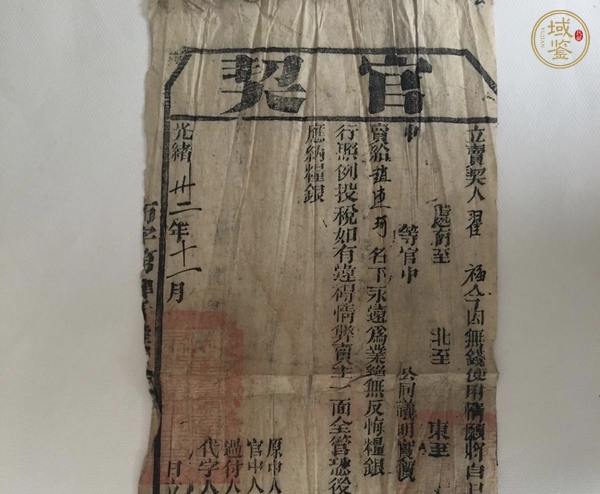 官契
立賣契人翟 福今因無錢使用情願將自己
至 北至 東至
中 等官中 公同議明實價
賣給趙連珂名下永遠為業絶無反悔糧銀
行照例投稅如有違碍情弊賣主一面全管恐後
應納糧銀
原中人
官中人
過付人
代字人
光緒廿二年十一月 日立
字第
域鑒
YUJIAN